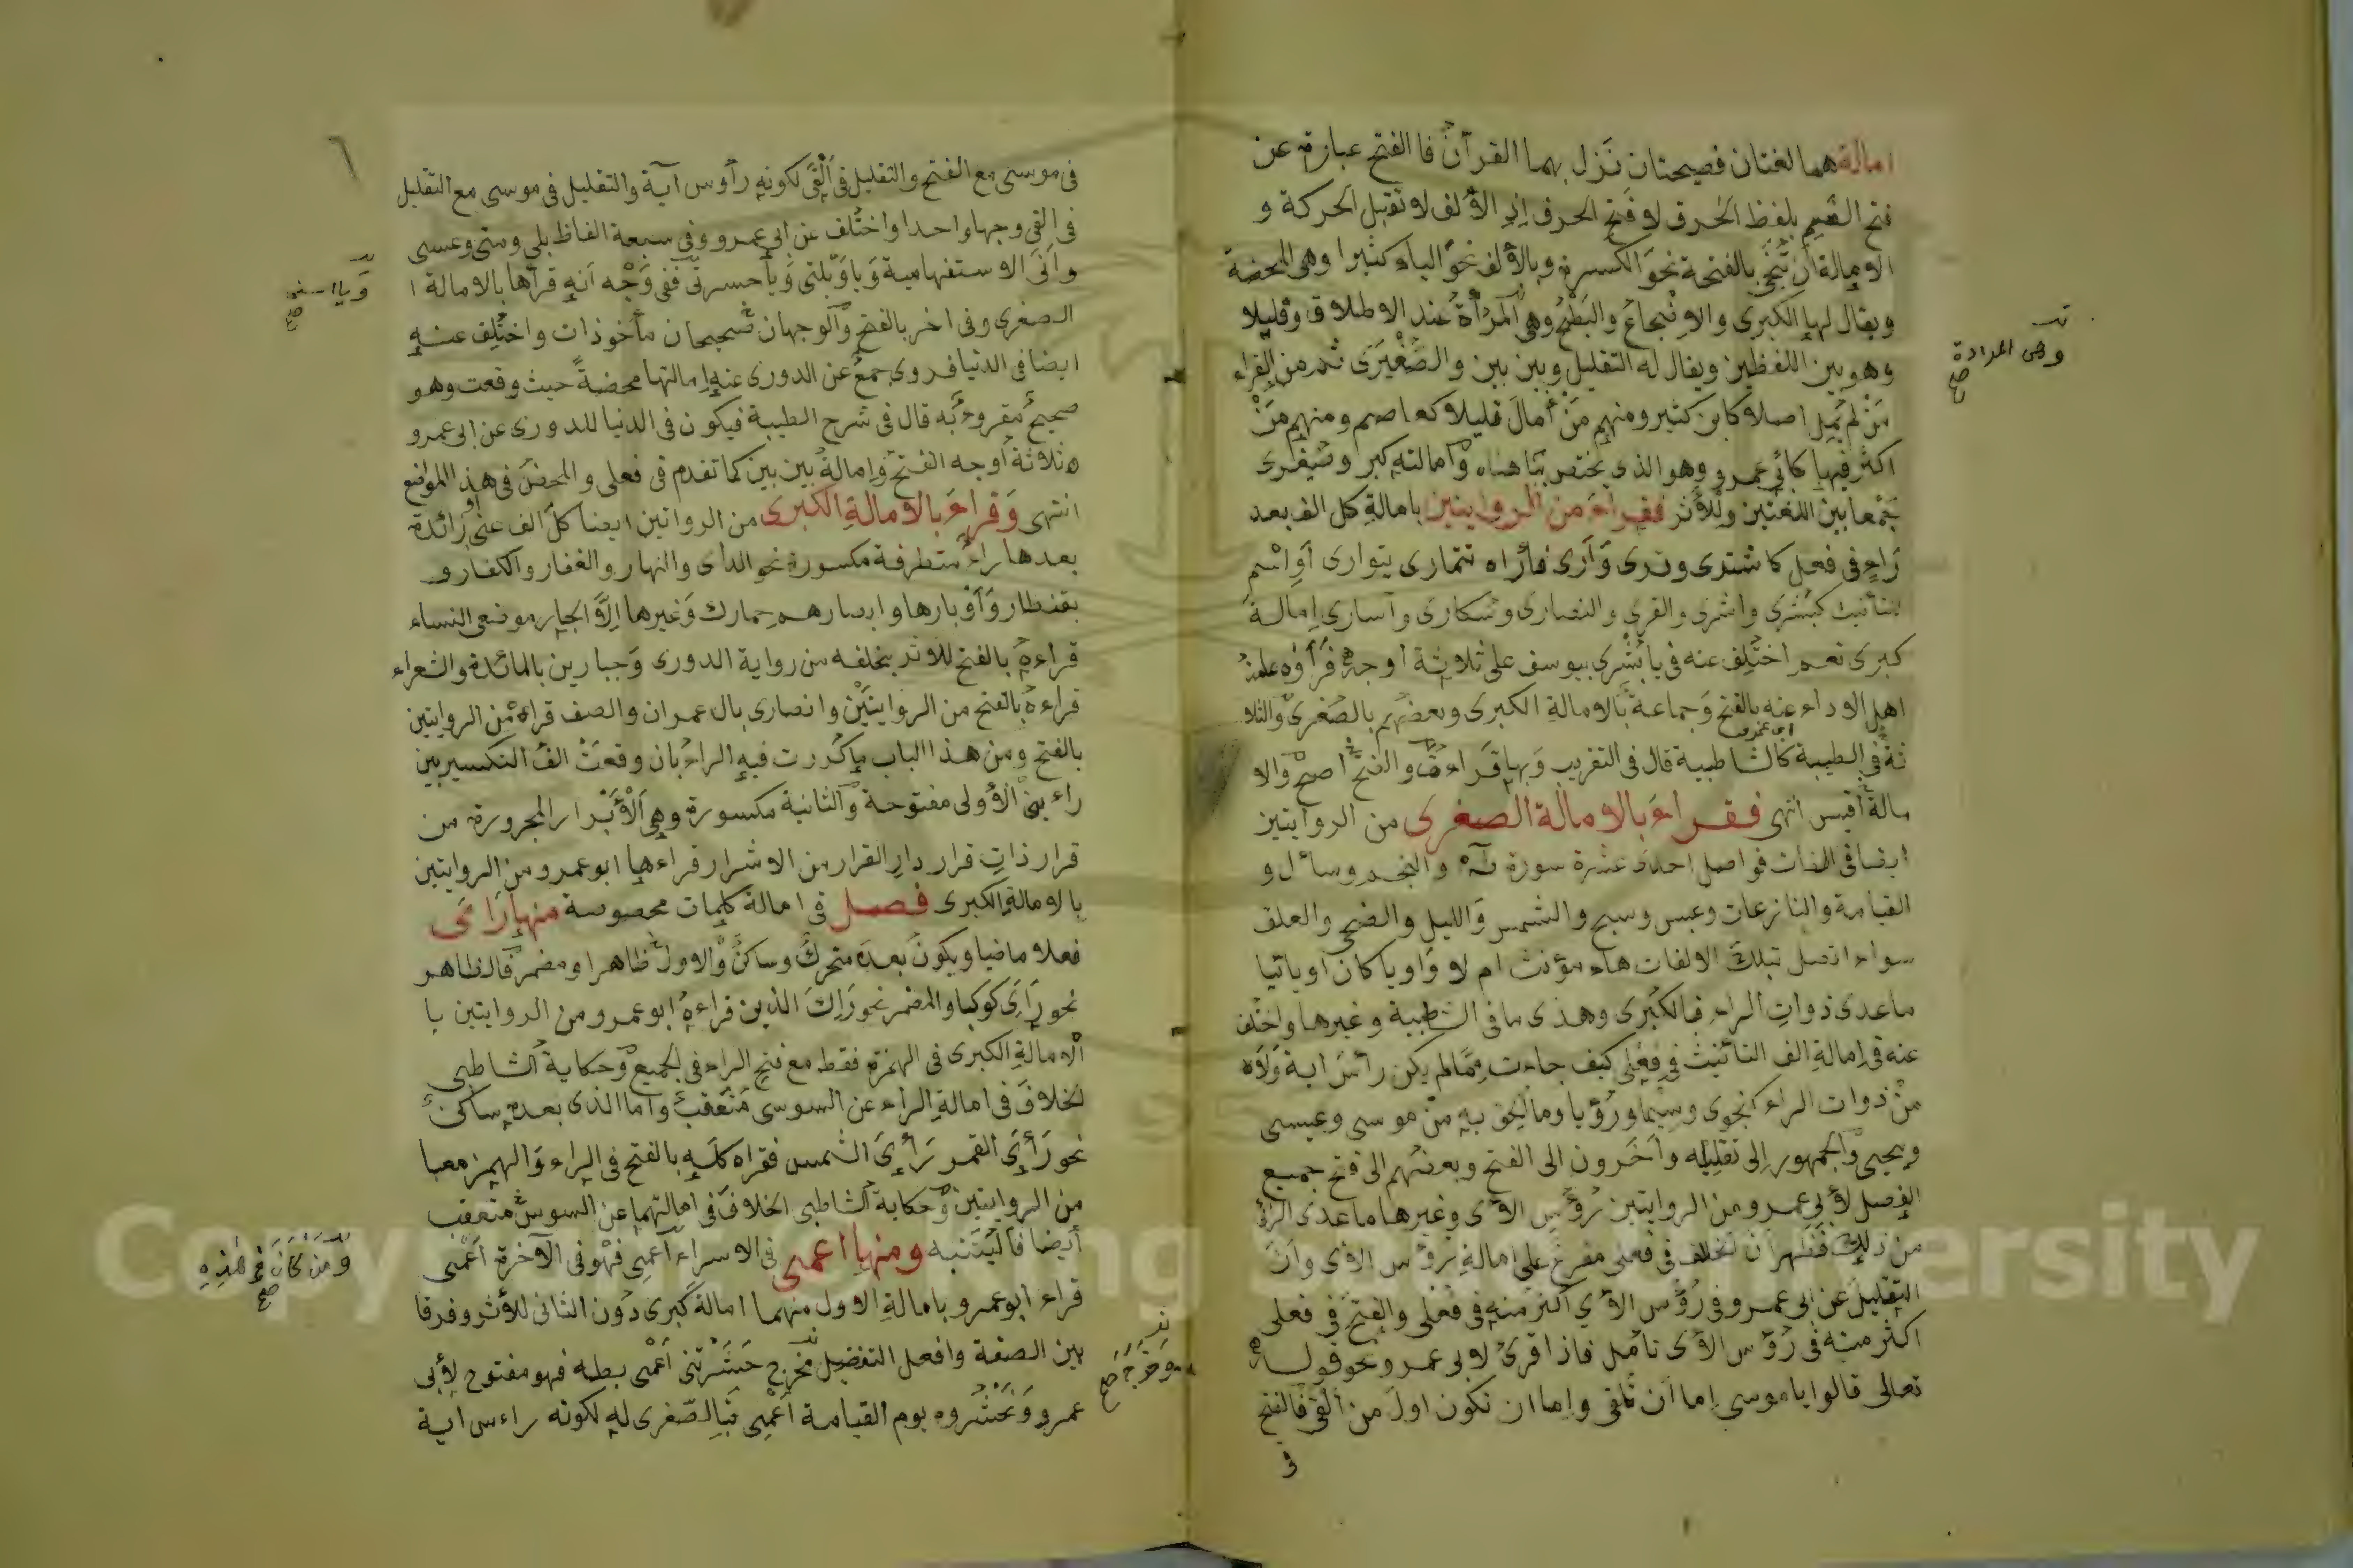 امالة هما لغتان فصيحتان نزل بهما القرآن فا الفتح عبارة عن
فتح الفم بلفظ الحرف لا فتح الحرف اذ الألف لا تقبل الحركة و
الامالة أن تنحى بالفتحة نحو الكسرة وبالألف نحو الياء كثيرا وهى المحضة
ويقال لها الكبرى والاضجاع والبطح وهى المرأة عند الاطلاق وقليلا
وهى المرادة صح
وهو بين اللفظين ويقال له التقليل وبين بين والصغيرى ثم من القراء
من لم يمل اصلا كابن كثير ومنهم من أمال قليلا كعاصم ومنهم من
اكثر فيها كأبى عمرو وهو الذى يختص بنا هناه وامالته كبر وصغرى
جمعا بين اللغتين وللأثر فقراء من الروايتين بامالة كل الف بعد
راء فى فعل كاشترى وترى وأرى فأراه تتمارى يتوارى أو اسم
للتأنيث كبشرى واشرى والقرى والنصارى وسكارى وأسارى امالة
كبرى نعم اختلف عنه فى يا بشرى بيوسف على ثلاثة أوجه فرأوه عامة
اهل الاداء عنه بالفتح وجماعة بالامالة الكبرى وبعضهم بالصغرى والثلا
ابى عمرو
ثة فى الطيبة كالشاطبية قال فى التقريب وبها قراءت والفتح اصح والا
مالة أقيس انتهى فقراء بالامالة الصغرى من الروايتين
ايضا فى الفات فواصل احدى عشرة سورة طه والنجم وسأل و
القيامة والنازعات وعبس وسبح والشمس والليل والضحى والعلق
سواء اتصل بتلك الالفات هاء مؤنث ام لا واويا كان او يائيا
ماعدى ذوات الراء فالكبرى وهذى ما فى الشاطبية وغيرها واختلف
عنه فى امالة الف التأنيث فى فعلى كيف جاءت مما لم يكن رأس اية ولاه
من ذوات الراء كنجوى وسيما ورؤيا وما لحق به من موسى وعيسى
ويحيى والجمهور الى تقليله وآخرون الى الفتح وبعضهم الى فتح جميع
الفصل لأبى عمرو من الروايتين رؤس الآى وغيرها ماعدى الرائى
من ذلك فظهر أن الخلاف فى فعلى مفرع على امالة رؤس الآى وأن
التقليل عن ابى عمرو فى رؤس الآى اكثر منه فى فعلى والفتح فى فعلى
اكثر منه فى رؤس الآى تأمل فاذا قرئ لابى عمرو نحو قوله
تعالى قالوا يا موسى اما أن تلقى واما ان نكون اول من ألقى فالفتح
فى
فى موسى مع الفتح والتقليل فى ألقى لكونه رأوس آية والتقليل فى موسى مع التقليل
فى القى وجها واحدا واختلف عن ابى عمرو وفى سبعة الفاظ بلى ومتى وعسى
وأنى الاستفهامية ويا ويلتى ويا حسرتى ففى وجه انه قرأها بالامالة ا
ويا اسفى صح
الصغرى وفى اخر بالفتح والوجهان صحيحان مأخوذات واختلف عنه
ايضا فى الدنيا فروى جمع عن الدورى عنه امالتها محضة حيث وقعت وهو
صحيح مقروء به قال فى شرح الطيبة فيكون فى الدنيا للدورى عن ابى عمرو
ثلاثة أوجه الفتح وامالة بين بين كما تقدم فى فعلى والمحض فى هذ المواضع
انتهى وقراء بالامالة الكبرى من الرواتين ايضا كل الف عين او زائدة
بعدها راء متطرفة مكسورة نحو الدار والنهار والغفار والكفار و
بقنطار وأوبارها وابصارهم حمارك وغيرها الا الجار موضعى النساء
قراءه بالفتح للاثر بخلفه من رواية الدورى وجبارين بالمائدة والشعراء
قراءه بالفتح من الروايتين وانصارى بال عمران والصف قراءه من الروايتين
بالفتح ومن هذا الباب ما كررت فيه الراء بان وقعت الف التكسير بين
راءين الأولى مفتوحة والثانية مكسورة وهى الأبرار المجرورة من
قرار ذات قرار دار القرار من الاشرار قراءها ابو عمرو من الروايتين
بالامالة الكبرى فصل فى امالة كلمات مخصوصة منها راى
فعلا ماضيا ويكون بعده متحرك وساكن والاول ظاهرا ومضمر فالظاهر
نحو راى كوكبا والمضمر نحو راك الذين قراءه ابو عمرو من الروايتين با
الامالة الكبرى فى الهمزة فقط مع فتح الراء فى الجميع وحكاية الشاطبى
الخلاف فى امالة الراء عن السوسى متعقب واما الذى بعده ساكن
نحو رأى القمر رأى الشمس فقراه كله بالفتح فى الراء والهمز معا
من الروايتين وحكاية الشاطبى الخلاف فى امالتهما عن السوسى متعقب
أيضا فاليتنبه ومنها اعمى فى الاسراء أعمى فهو فى الآخرة أعمى
ومن كان فى هذه صح
قراء ابو عمرو بامالة الاول منهما امالة كبرى دون الثانى للأثر وفرقا
بين الصفة وافعل التفضيل فخرج حشرتنى أعمى بطه فهو مفتوح لأبى
وخرجه صح
عمرو ونحشروه يوم القيامة أعمى فبالصغرى له لكونه راءس اية